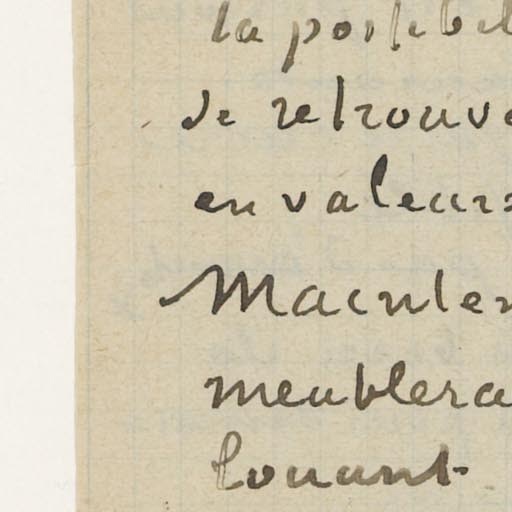 la possibil
de retrouve
en valeurs
Maintena
meublera
louant